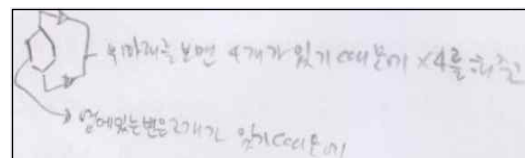 위 아래를 보면 4개가 있기 때문에 ×4를 해주고
옆에있는변은 2개가 있기 때문에